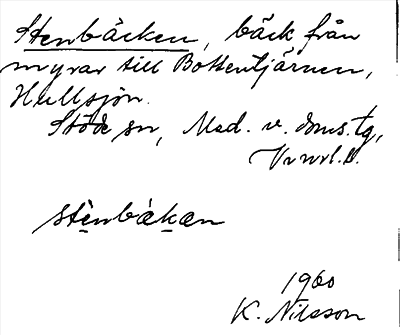 Stenbäcken, bäck från
myrar till Bottentjärnen,
Hullsjön.
Stöde sn, Med. v. doms. tg,
stènbäkæn
1960
K. Nilsson